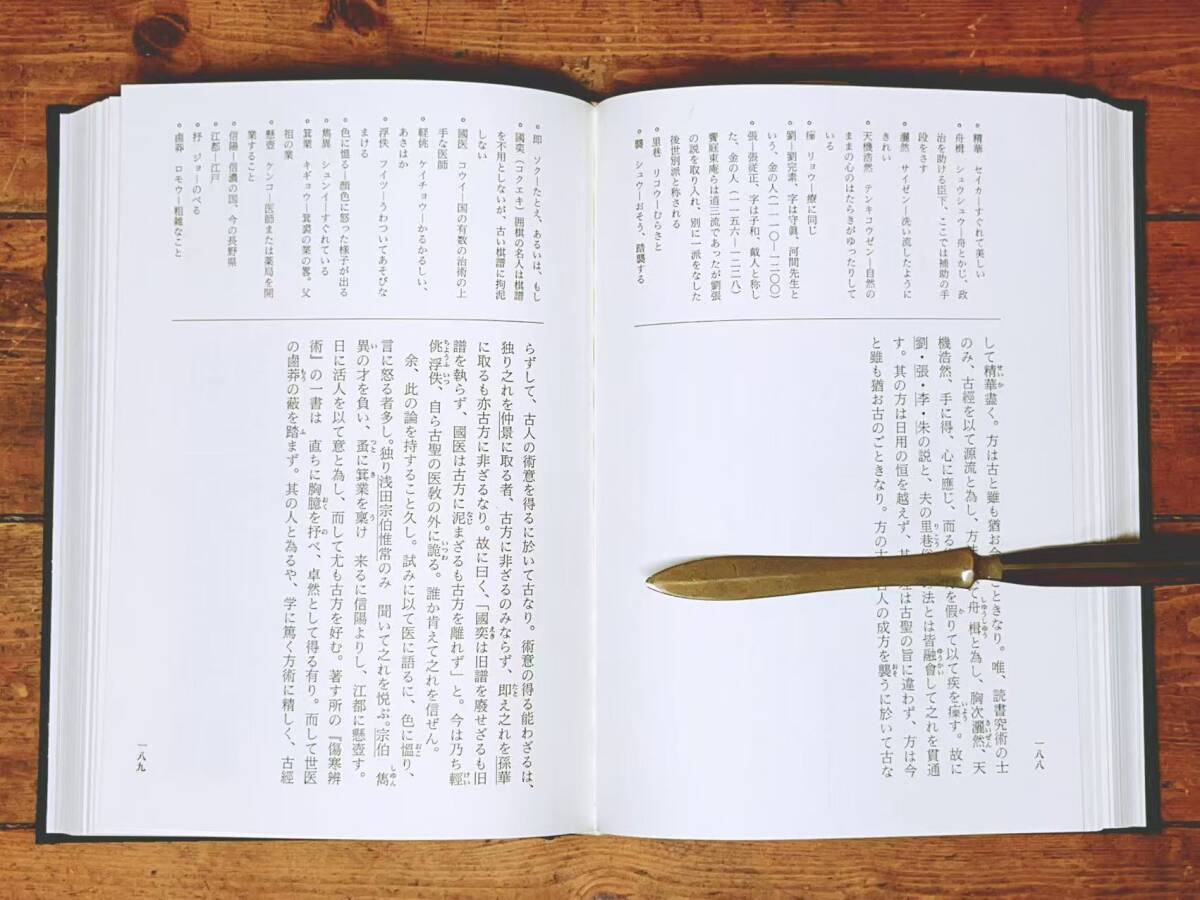 。精華　セイカーすぐれて美しい
。舟楫　シュウシュウー舟とかじ、政
治を助ける臣下、ここでは補助の手
段をさす
。灑然　サイゼンー洗い流したように
きれい
。天機浩然　テンキコウゼンー自然の
ままの心のはたらきがゆったりして
いる
。瘵　リョウー療に同じ
。劉ー劉完素、字は守眞、河間先生と
いう、金の人(一一一〇ー一二〇〇)
。張ー張従正、字は子和、戴人と称し
た、金の人(一一五六ー一二二八)
饗庭東庵らは道三流であったが劉張
の説を取り入れ、別に一派をなした
後世別派と称される
。里巷　リコウーむらざと
。襲　シュウーおそう、踏襲する
して精華盡く。方は古と雖も猶お今のごときなり。唯、読書究術の士
のみ、古經を以て源流と為し、方
て舟楫と為し、胸次灑然、天
機浩然、手に得、心に應じ、而る
を假りて以て疾を瘵す。故に
劉・張・李・朱の説と、夫の里巷俗
法とは皆融會して之れを貫通
す。其の方は日用の恒を越えず、其
は古聖の旨に違わず、方は今
と雖も猶お古のごときなり。方の
人の成方を襲うに於いて古な
一八八
。即　ソクーたとえ、あるいは、もし
。國奕(コクエキ)囲棋の名人は棋譜
を不用としないが、古い棋譜に拘泥
しない
。國医　コウイー国の有数の治術の上
手な医師
。軽佻　ケイチョウーかるかるしい、
あさはか
。浮佚　フイツーうわついてあそびな
まける
。色に慍るー顔色に怒った様子が出る
。雋異　シュンイーすぐれている
。箕業　キギョウー箕裘の業の畧。父
祖の業
。懸壺　ケンコー医師または薬局を開
業すること
。信陽ー信濃の国、今の長野県
。江都ー江戸
。抒　ジョーのべる
。鹵莽　ロモウー粗雑なこと
らずして、古人の術意を得るに於いて古なり。術意の得る能わざるは、
独り之れを仲景に取る者、古方に非ざるのみならず、即え之れを孫華
に取るも亦古方に非ざるなり。故に曰く、「國奕は旧譜を廢せざるも旧
譜を執らず、國医は古方に泥まざるも古方を離れず」と。今は乃ち輕
佻浮佚、自ら古聖の医教の外に詭る。誰か肯えて之れを信ぜん。
余、此の論を持すること久し。試みに以て医に語るに、色に慍り、
言に怒る者多し。独り浅田宗伯惟常のみ　聞いて之れを悦ぶ。宗伯　雋
異の才を負い、蚤に箕業を稟け　来るに信陽よりし、江都に懸壺す。
日に活人を以て意と為し、而して尤も古方を好む。著す所の『傷寒辨
術』の一書は　直ちに胸臆を抒べ、卓然として得る有り。而して世医
の鹵莽の蔽を踏まず。其の人と為るや、学に篤く方術に精しく、古經
一八九